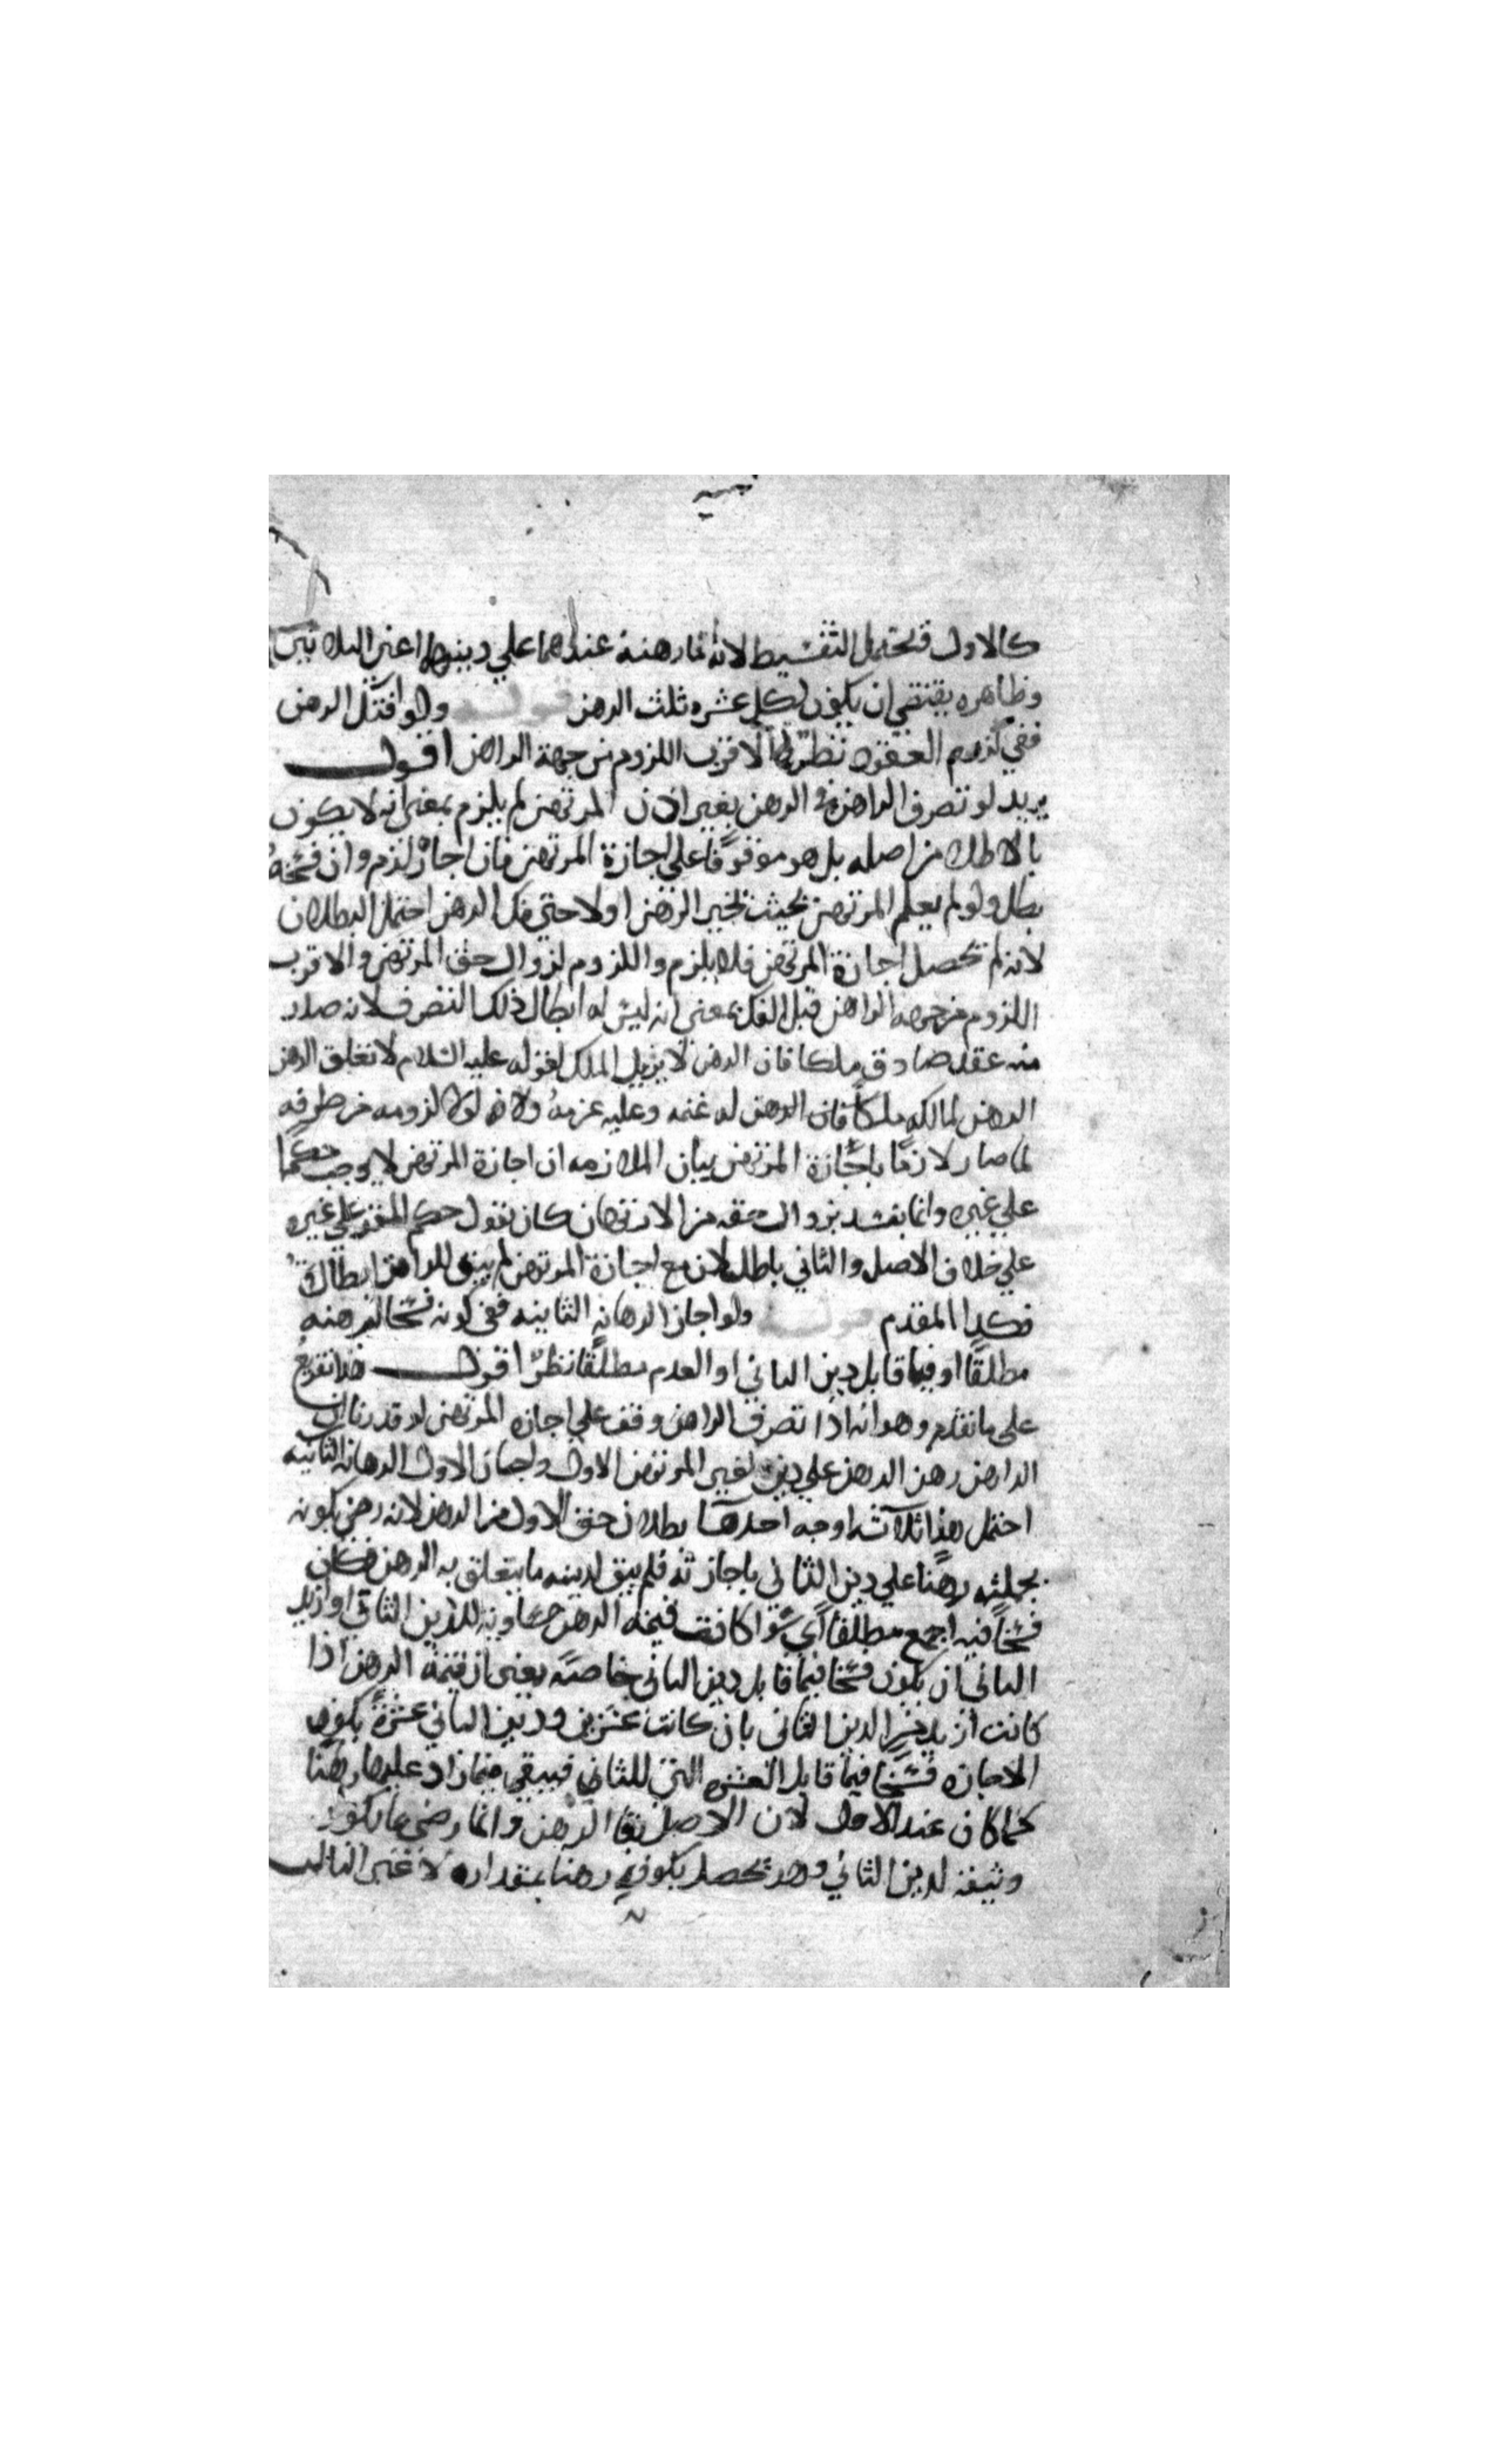 كالاول فتحتمل التقسيط لانه انما رهنه عندهما علي دينهما اعني الثلاثين
وظاهره يقتضي ان يكون لكل عشره ثلث الرهن قوله ولو افتك الرهن
ففي لزوم العقود نظر الاقرب اللزوم من جهة الراهن اقول
يريد لو تصرف الراهن في الرهن بغير اذن المرتهن لم يلزم بمعني انه لا يكون
باطلا من اصله بل هو موقوفا علي اجازة المرتهن فان اجاز لزم وان فسخه
بطل ولو لم يعلم المرتهن بحيث يخير اولا حتي فك الرهن احتمل البطلان
لانه لم تحصل اجازة المرتهن فلا يلزم واللزوم لزوال حق المرتهن والاقرب
اللزوم من جهه الراهن قبل الفك بمعني انه ليس له ابطال ذلك التصرف لانه صدر
منه عقد صادق ملكا فان الرهن لا يزيل الملك لقوله عليه السلام لا تغلق الرهن
الرهن لمالكه فان الرهن له غنمه وعليه غرمه ولانه لولا لزومه من طرفه
لما صار لازما باجازة المرتهن بيان الملازمه ان اجازة المرتهن لا يوجب حكما
علي غيره وانما يفسد بزوال حقه من الارتهان كان نقول حكم علي غيره
علي خلاف الاصل والثاني باطل لان مع اجازة المرتهن لم يبق للراهن ابطاله
فكذا المقدم قوله ولو اجاز الرهانه الثانيه ففي كونه فسخا لرهنه
مطلقا او فيما قابل دين الثاني او العدم مطلقا نظر اقول هذا تفريع
علي ما تقدم وهو انه اذا تصرف الراهن وقف علي اجازه المرتهن لو قدرنا ان
الراهن رهن الرهن علي دين لغير المرتهن الاول واجاز الاول الرهانه الثانيه
احتمل هنا ثلاثه اوجه احدها بطلان حق الاول من الرهن لانه رضي بكونه
بجملته رهنا علي دين الثاني باجازته فلم يبق لدينه ما يتعلق به الرهن فكان
فسخا فيه اجمع مطلقا اي سوا كانت قيمه الرهن مساويه للدين الثاني او ازيد
الثاني ان يكون فسخا فيما قابل دين الثاني خاصه يعني ان قيمة الرهن اذا
كانت ازيد من الدين الثاني بان كانت عشرين ودين الثاني عشرة يكون
الاجازه فسخا فيما قابل العشره التي للثاني فيبقي فيما زاد عليها رهنا
كما كان عند الاول لان الاصل بقا الرهن وانما رضي ما يكون
وثيقه لدين الثاني وهو يحصل بكونه رهنا بمقداره لا غير الثالث